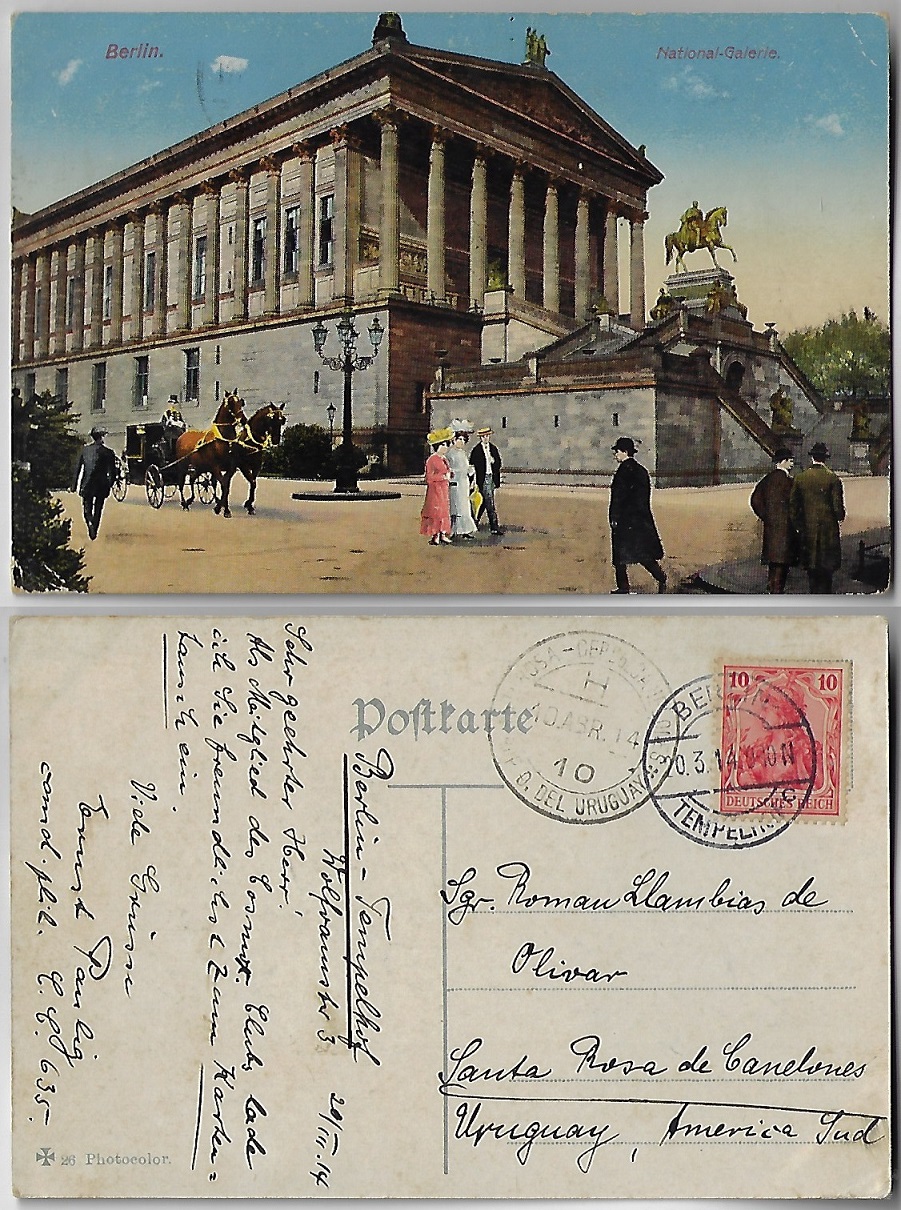 Berlin.
National-Galerie.
Postkarte
10 10
DEUTSCHES REICH
BERLIN
0.3.14.
TEMPELHOF
10 ABR. 14
10
DEL URUGUAY
Berlin - Tempelhof
Wolframstr 3 20/III.14
Sehr geehrter Herr!
Als Mitglied des Cosmop. Clubs lade
ich Sie freundlichst zum Karten=
tausch ein.
Viele Grüsse
Ernst Paulig
cand. phil. C.C. 635.
Sgr. Roman Llambias de
Olivar
Santa Rosa de Canelones
Uruguay, America Sud
26 Photocolor.